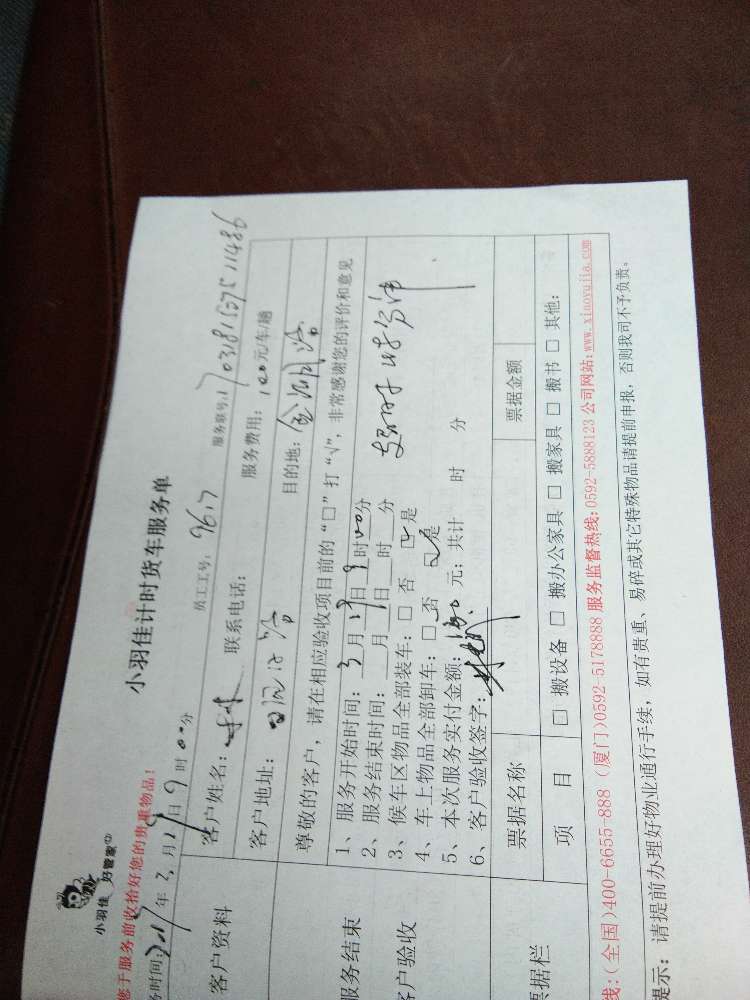 小羽佳 好管家
小羽佳计时货车服务单
您于服务前收拾好您的贵重物品！
务时间：2017年3月19日9时00分 员工工号：9617 服务账号：
客户资料
客户姓名： 联系电话： 服务费用：100元/车/趟
客户地址： 目的地：
尊敬的客户，请在相应验收项目前的“□”打“√”，非常感谢您的评价和意见
服务结束
客户验收
1、服务开始时间：3月19日9时00分
2、服务结束时间： 月 日 时 分
3、候车区物品全部装车：□ 否 ☑ 是
4、车上物品全部卸车：□ 否 ☑ 是
5、本次服务实付金额： 元；共计 时 分
6、客户验收签字：
票据栏
票据名称 票据金额
项 目 □ 搬设备 □ 搬办公家具 □ 搬家具 □ 搬书 □ 其他：
线：(全国)400-6655-888 (厦门)0592-5178888 服务监督热线：0592-5888123 公司网站：www.xiaoyujia.com
提示：请提前办理好物业通行手续，如有贵重、易碎或其它特殊物品请提前申报，否则我司不予负责。